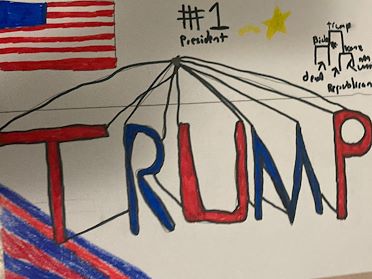 #1
President
Trump
dead
Republican
TRUMP